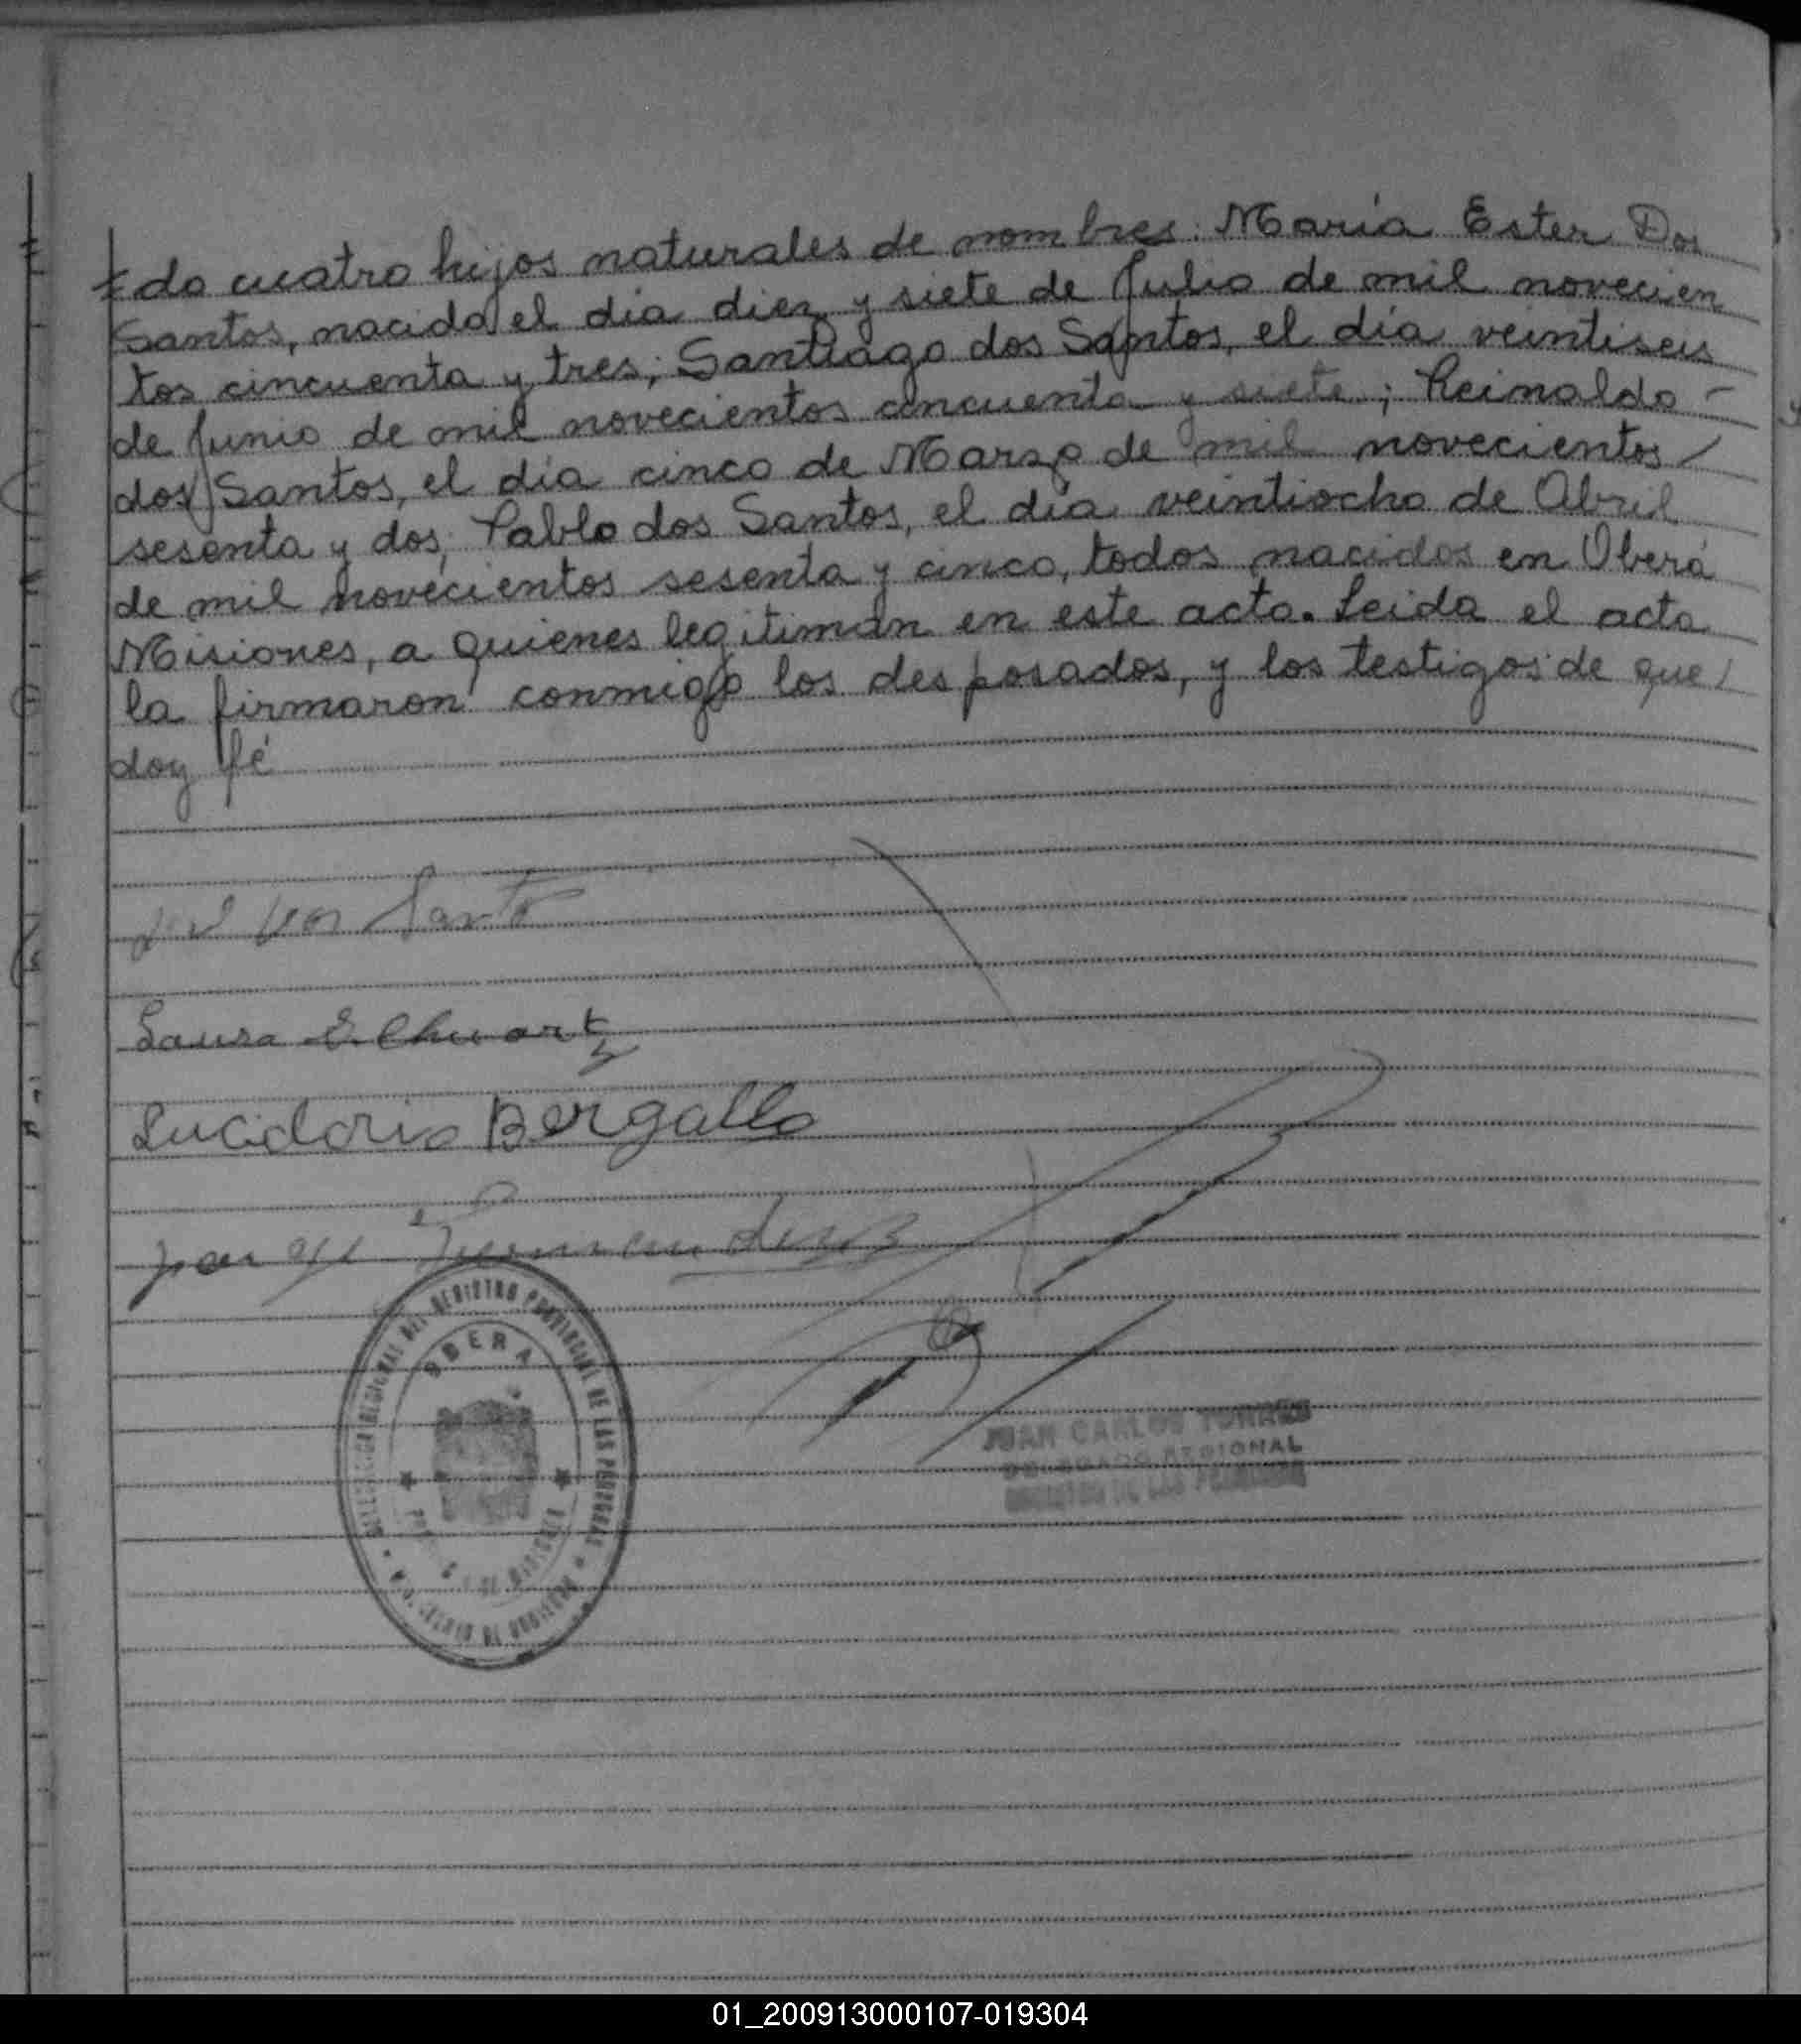 do cuatro hijos naturales de nombres: María Ester Dos
Santos, nacida el día diez y siete de Julio de mil novecien
tos cincuenta y tres; Santiago dos Santos, el día veintiseis
de Junio de mil novecientos cincuenta y siete; Reinaldo -
dos Santos, el día cinco de Marzo de mil novecientos
sesenta y dos; Pablo dos Santos, el día veintiocho de Abril
de mil novecientos sesenta y cinco, todos nacidos en Oberá
Misiones, a quienes legitiman en este acto. Leida el acta
la firmaron conmigo los desposados, y los testigos de que
doy fé
Santo
Laura
Lucidorio Bergallo
REGISTRO PROVINCIAL DE LAS PERSONAS
OBERA
JUAN CARLOS TORRES
DELEGADO REGIONAL
REGISTRO DE LAS PERSONAS
01_200913000107-019304